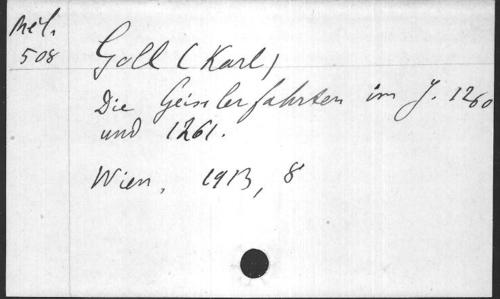 Mél.
508
Goll (Karl)
Die Geislerfahrten im J. 1260
und 1261.
Wien, 1913, 8